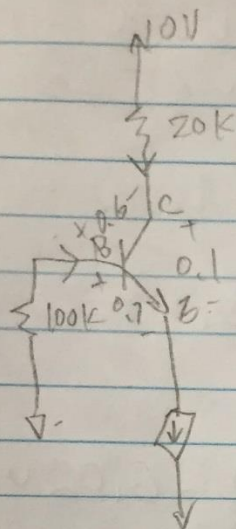 10V
20K
+ 0.6 -
C
+
B
0.1
+
100K 0.7
E -
-